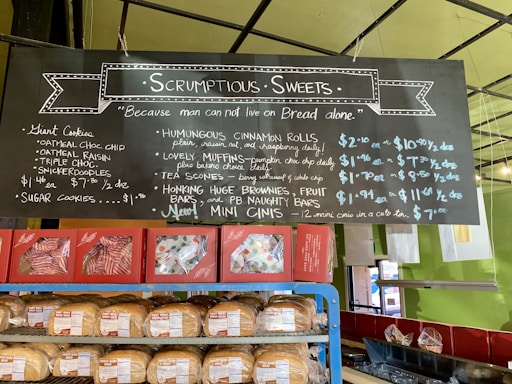 SCRUMPTIOUS • SWEETS
"Because man can not live on Bread alone."
• Giant Cookies
• OATMEAL CHOC CHIP
• OATMEAL RAISIN
• TRIPLE CHOC
• SNICKERDOODLES
1/2 dz
• SUGAR COOKIES....
• HUMUNGOUS CINNAMON ROLLS
plain, raisin, nut, and raspberry daily!
$2.10 ea ~ $10.50 1/2 dz
• LOVELY MUFFINS - pumpkin choc chip daily
plus bakers choice daily
1/2 dz
• TEA SCONES - berry w/ white chip
1/2 dz
• HONKING HUGE BROWNIES, FRUIT
BARS, and PB NAUGHTY BARS
$1.94 ea 1/2 dz
• New! MINI CINIS - 12 mini cinis in a cute tin,